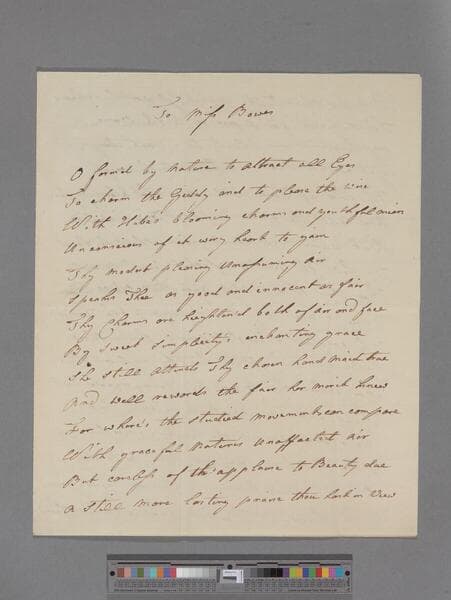 To Miss Bowes
O form'd by Nature to attract all Eyes
To charm the Giddy and to please the wise
With Hebe's blooming charms and youthful mien
Unconscious of it every heart to gain
Thy modest pleasing Unassuming air
Speaks Thee as good and innocent as fair
Thy Charms are heighten'd both of air and face
By sweet simplicity's enchanting grace
She still attends Thy chosen hand maid true
And well rewards the fair her
For where's the studied movements can compare
With graceful Natures Unaffected air
But careless of the applause to Beauty due
A still more lasting praise thou hast in View